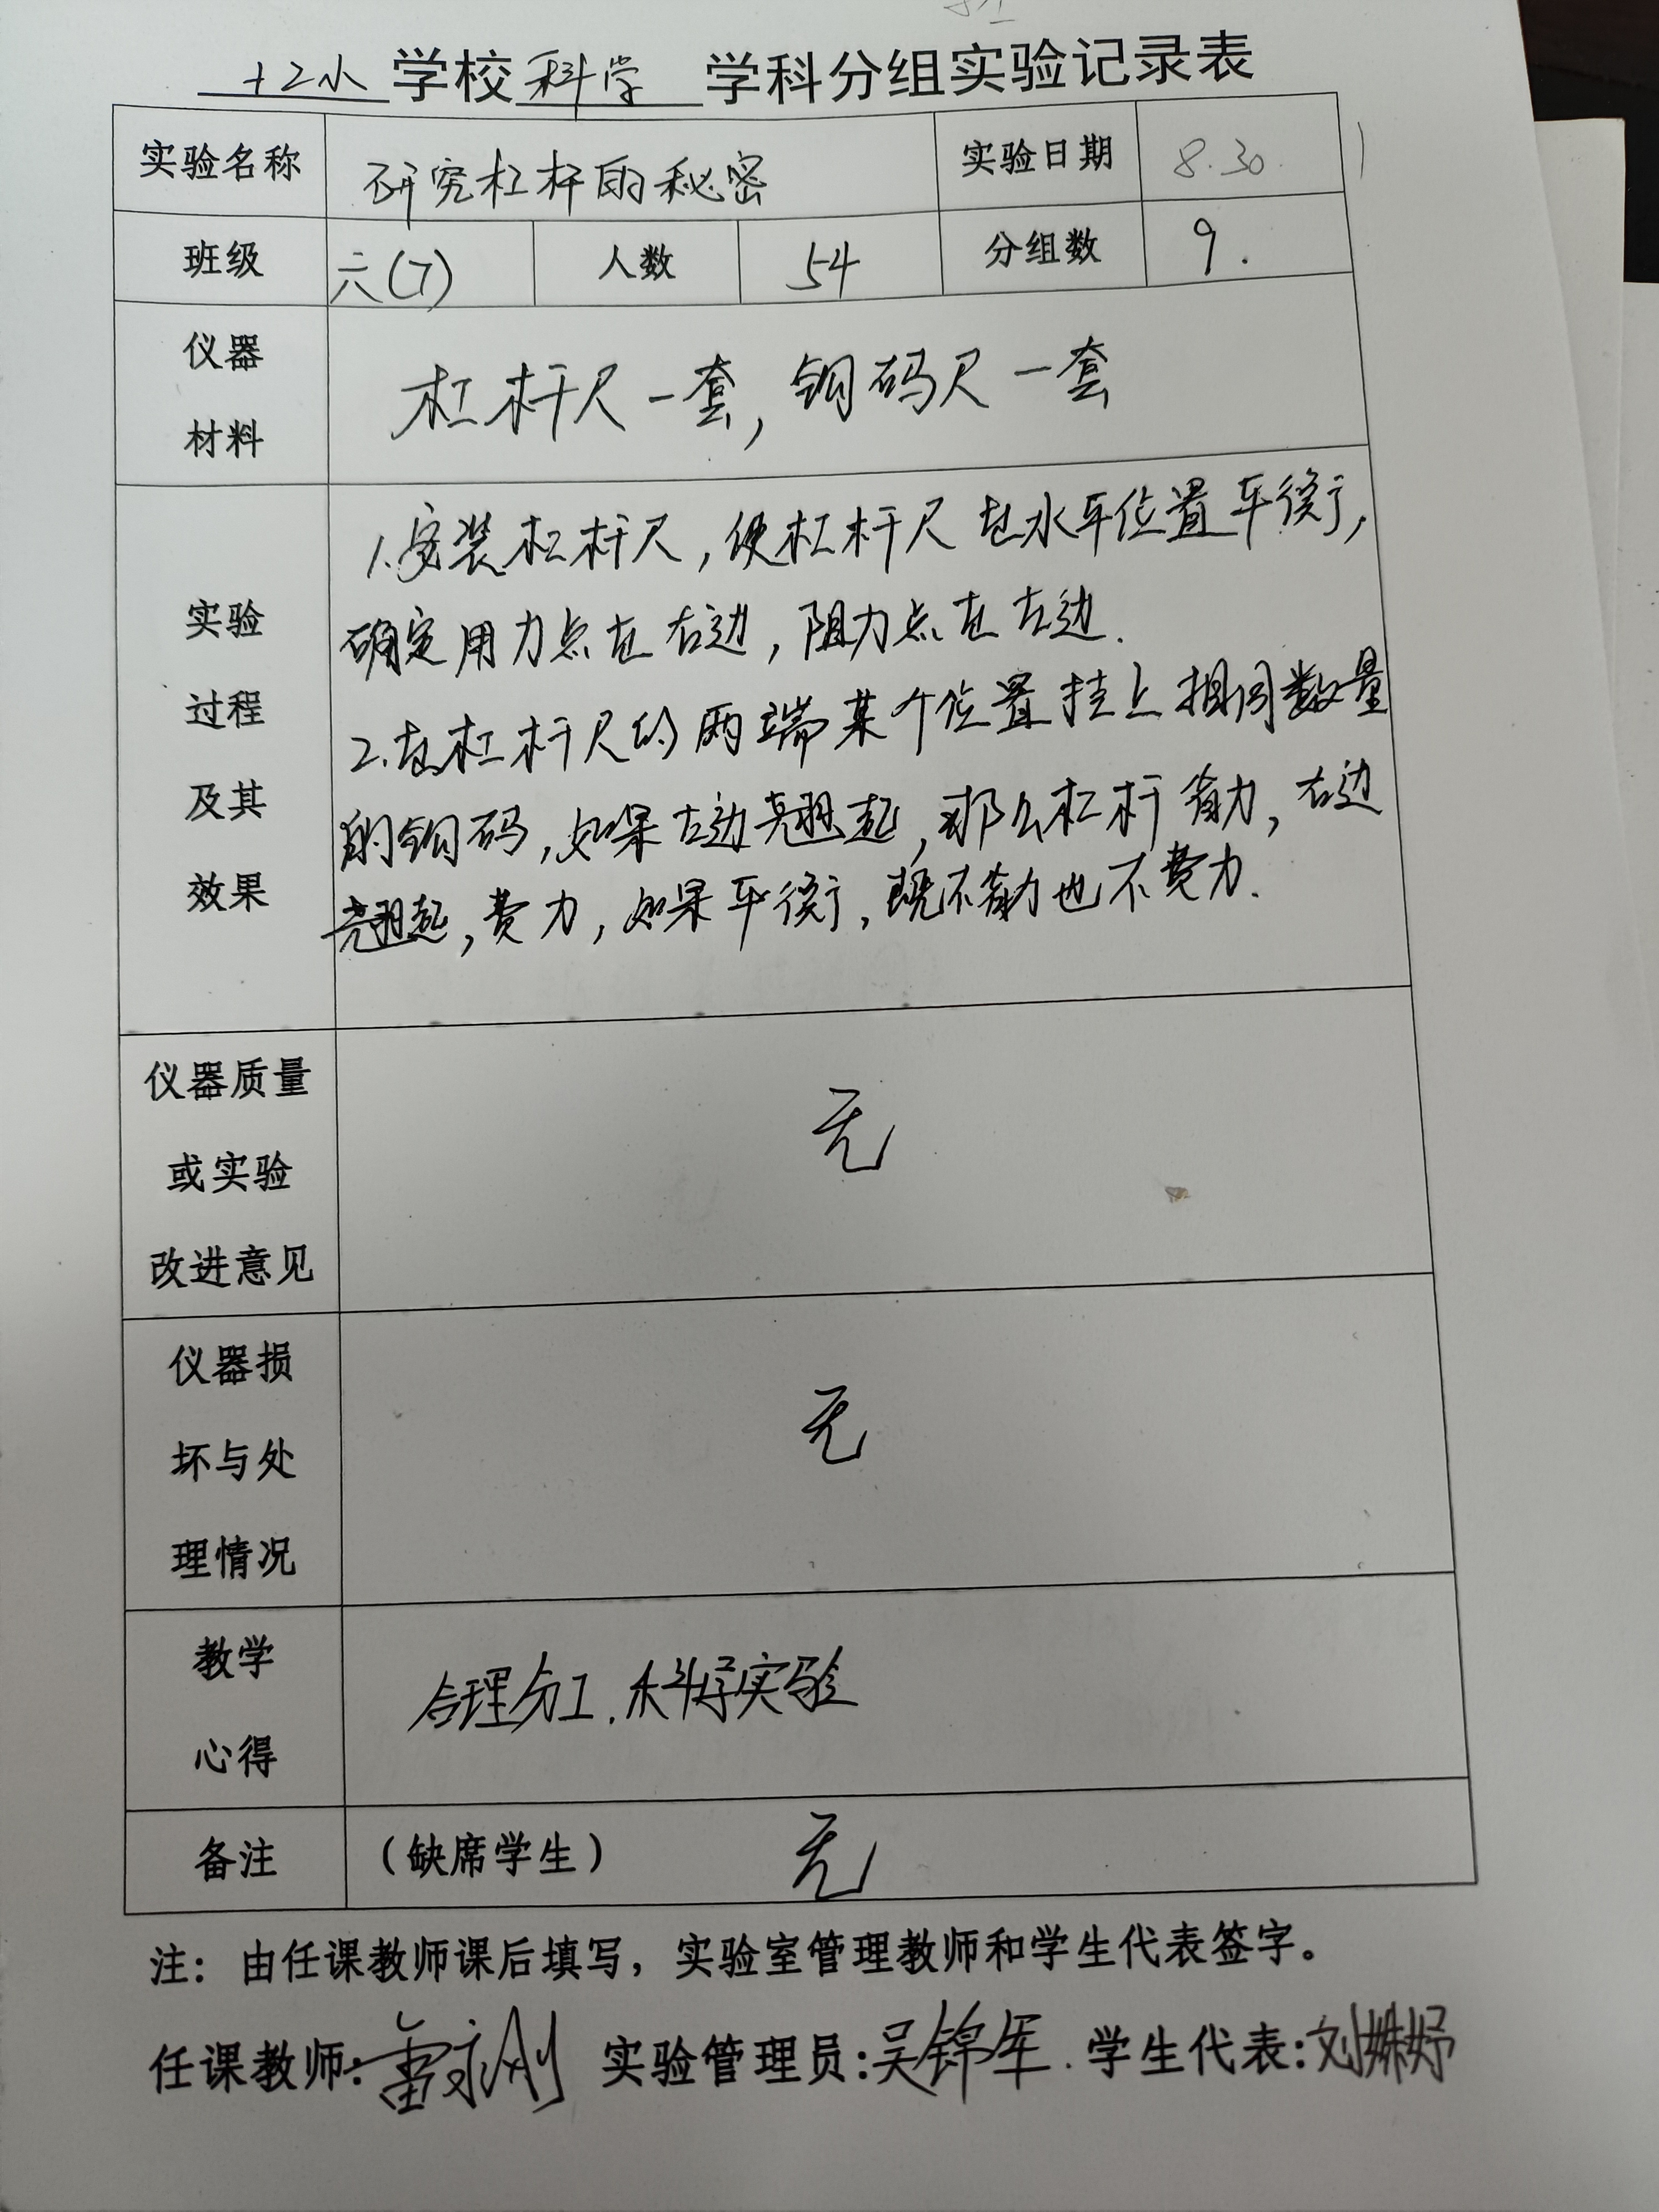 十2小 学校 科学 学科分组实验记录表
实验名称 研究杠杆的秘密 实验日期 8.30.
班级 六(7) 人数 54 分组数 9.
仪器
材料
杠杆尺一套,钩码尺一套
实验
过程
及其
效果
1.安装杠杆尺,使杠杆尺在水平位置平衡,
确定用力点在右边,阻力点在左边.
2.在杠杆尺的两端某个位置挂上相同数量
的钩码,如果左边翘起,那么杠杆省力,右边
翘起,费力,如果平衡,既不省力也不费力.
仪器质量
或实验
改进意见
无
仪器损
坏与处
理情况
无
教学
心得
合理分工.科学实验
备注 (缺席学生) 无
注:由任课教师课后填写,实验室管理教师和学生代表签字。
任课教师: 实验管理员:吴锦军. 学生代表:刘姝妤